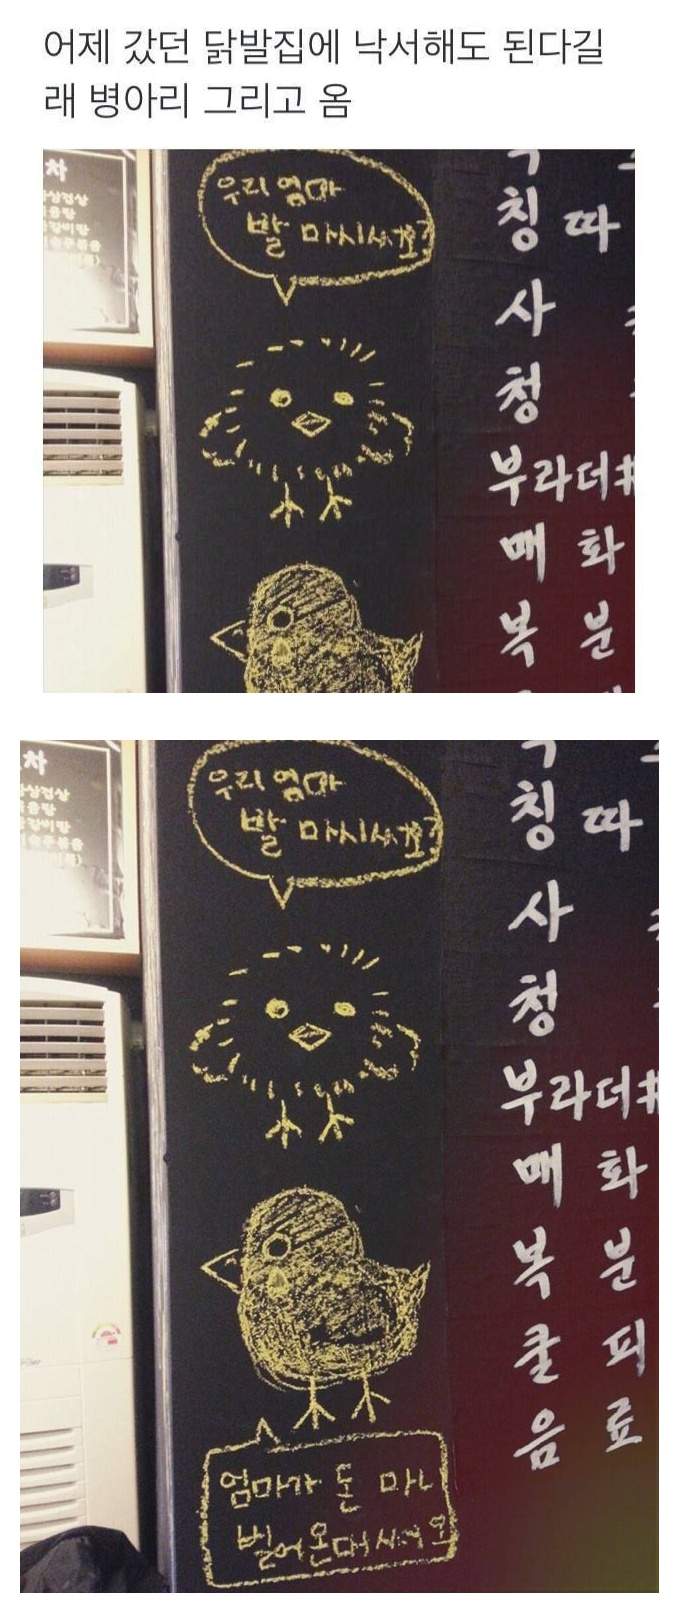 어제 갔던 닭발집에 낙서해도 된다길
래 병아리 그리고 옴
차
우리 엄마
발 마시써요?
칭 따
사
청
부라더#
매 화
복 분
차
우리 엄마
발 마시써요?
칭 따
사
청
부라더#
매 화
복 분
쿨 피
음 료
엄마가 돈 마니
벌어온대써여